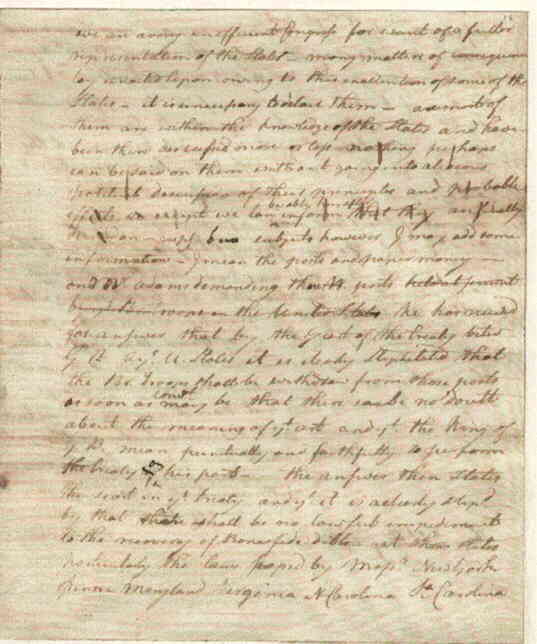 we are a very inefficient Congress for want of a fuller
representation of the States - many matters of consequen
lay unacted upon owing to this inattention of some of the
States - it is unnecessary to detail them - as most of
them are within the knowledge of the States and have
been there discussed more or less nothing perhaps
can be said on them without going into a
discussion of their principles and probable
effects we except we can inform that they are really
on two subjects however I may add some
information - I mean the posts and paper money -
and Mr Adams demanding the posts
were in the United States He has received
for answer that by the 7 art of the Treaty betw
G B & yе U. States it is clearly stipulated that
the Br. Troops shall be withdrawn from those posts
as soon as may be that there can be no doubt
about the meaning of yt art and yt the King of
G B. mean punctually and faithfully to perform
the treaty on his part - the answer then States
the art in yt treaty and yt it is clearly stipd
by that there shall be no lawful impediment
to the recovery of Bonafide debts - it then states
particularly the laws passed by Massts New York
Maryland Virginia N Carolina So Carolina